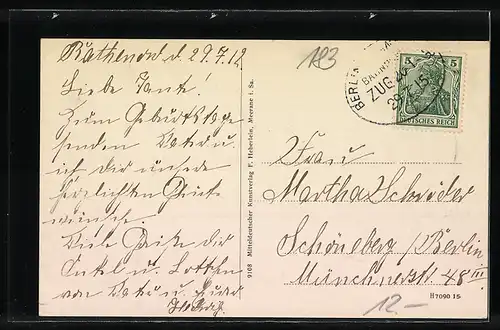 Rathenow d. 29.7.12
Liebe Tante!
Zum Geburtstage
senden Vater u.
ich dir unsere
herzlichsten Glück-
wünsche.
Viele Grüße dir
Onkel u. Lottchen
von Vater u. Eurer
183
BERLIN
BAHNPOST
ZUG
29.7.15
5
DEUTSCHES REICH
Frau
Martha Schröder
Schöneberg / Berlin
Münchenerstr. 48 III
12.-
9108 Mitteldeutscher Kunstverlag F. Heberlein, Meerane i. Sa.
H7090 15